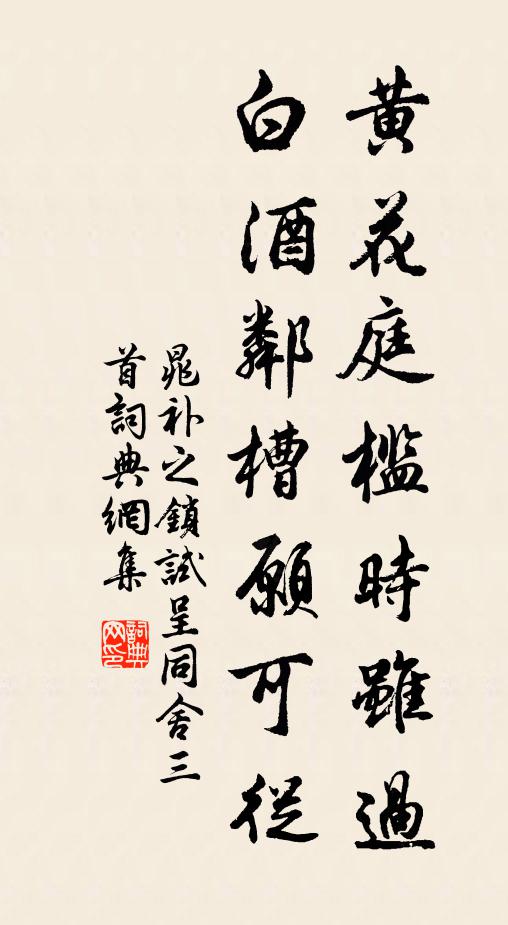 黄花庭檻時雖過
白酒鄰槽願可從
晁补之鎖試呈同舍三
首詞典網集
詞典
网印